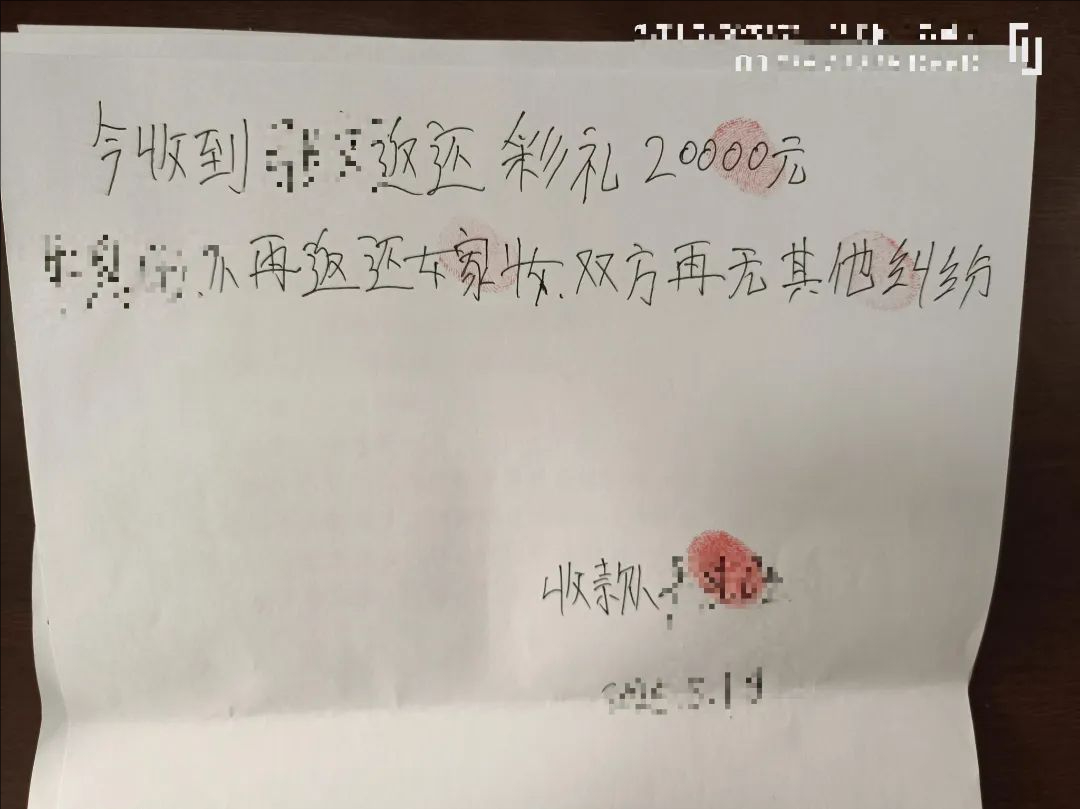 今收到 返还彩礼20000元
不再返还女家妆.双方再无其他纠纷
收款人